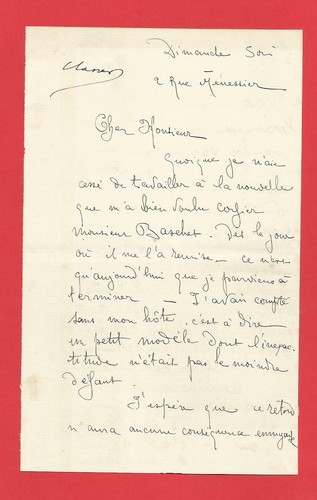 Dimanche Soir
Classer
2 Rue Ménessier
Cher Monsieur
Quoique je n'aie
cessé de travailler à la nouvelle
que m'a bien voulu confier
monsieur Baschet. Dès le jour
où il me l'a remise - ce n'est
qu'aujourd'hui que je parviens à
terminer - J'avais compté
sans mon hôte, c'est à dire
un petit modèle dont l'inexac-
titude n'était pas le moindre
défaut.
J'espère que ce retard
n'aura aucune conséquence